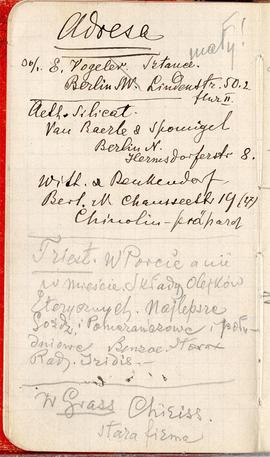 Adresa
mały!
E. Vogeler
Berlin SW. Lindenstr. 50.2
flur II.
Aeth. Silicat.
Van Baerle & Sponnagel
Berlin N.
Hermsdorferstr 8.
With. & Benkendorf
Berl. N Chausseestr. 19 (47)
Chinolin-präparaś
Triest. W Porcie a nie
w mieście. Składy Olejków
Eterycznych. Najlepsze
i Pomarańczowe i połu-
dniowe Benzoe. Storax
Rad. Iridis
W Grass Chiriss.
stara firma